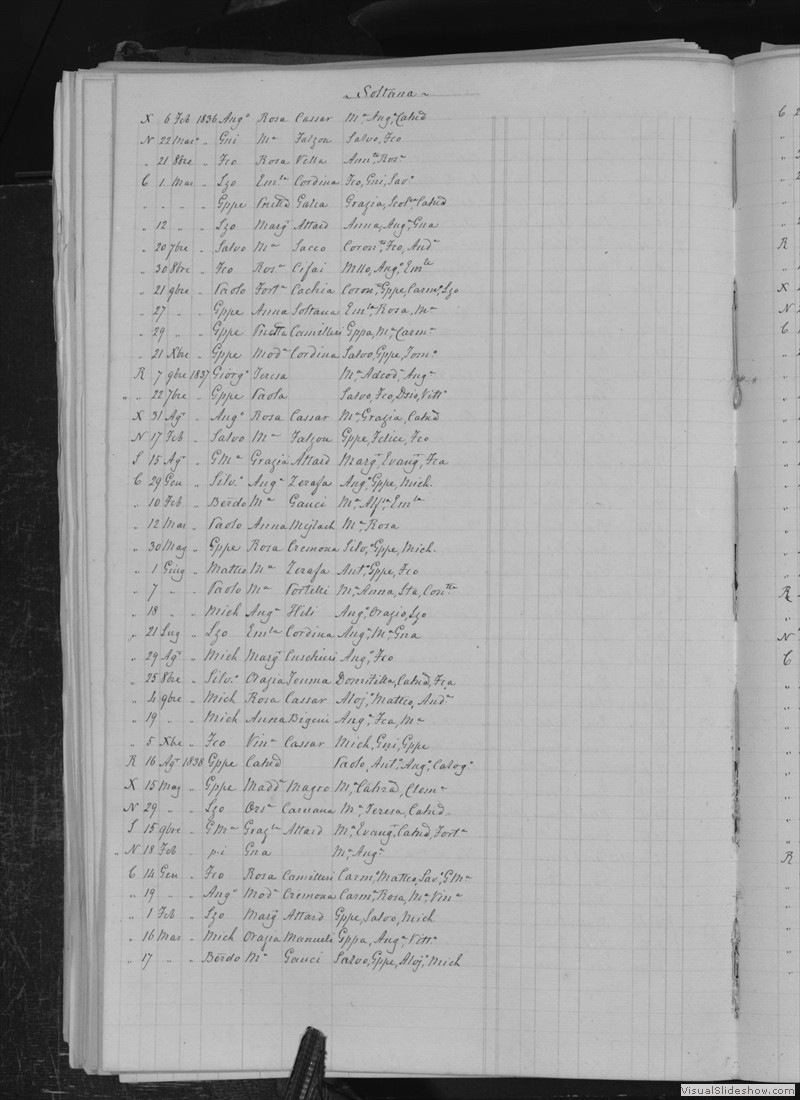 Soltana
X 6 Feb 1836 Ang.o Rosa Cassar M.a Ang.a Catnd
N 22 Mar.o „ Gni M.a Falzon Salvo, Fco
„ 21 8bre „ Fco Rosa Vella Ann.ta Ros.a
C 1 Mar „ Szo Em.la Cordina Fco, Gni, Sav.o
„ „ „ „ Gppe Vnetta Galea Grazia, Scol.a Catnd
„ 12 „ „ Szo Marg.a Attard Anna, Ang.a Gna
„ 20 7bre „ Salvo M.a Sacco Coron.a Fco, And.a
„ 30 8bre „ Fco Ros.a Cifai Mllo, Ang.o Em.la
„ 21 9bre „ Paolo Fort.a Cachia Coron.a Gppe, Carm.o Szo
„ 27 „ „ Gppe Anna Soltana Em.la Rosa, M.a
„ 29 „ „ Gppe Vnetta Camilleri Gppa, M.a Carm.a
„ 21 Xbre „ Gppe Mod.a Cordina Salvo, Gppe, Tom.o
R 7 9bre 1837 Giorg.o Teresa M.a Adeod.a Ang.a
„ „ 22 7bre „ Gppe Paola Salvo, Fco, Dzio, Vitt.a
X 31 Ag.o „ Ang.o Rosa Cassar M.a Grazia, Catnd
N 17 Feb „ Salvo M.a Falzon Gppe, Felice, Fco
S 15 Ag.o „ GM.a Grazia Attard Marg.a Evang.a Fca
C 29 Gen „ Silv.o Ang.a Zerafa Ang.o Gppe, Mich.
„ 10 Feb „ Berdo M.a Gauci M.a Alf.sa Em.la
„ 12 Mar „ Paolo Anna Mejlach M.a Rosa
„ 30 Mag „ Gppe Rosa Cremona Silv.o Gppe, Mich.
„ 1 Giug „ Matteo M.a Zerafa Ant.o Gppe, Fco
„ 7 „ „ Paolo M.a Portelli M.a Anna, Sta, Con.tta
„ 18 „ „ Mich Ang.a Hili Ang.o Orazio, Szo
„ 21 Lug „ Szo Em.la Cordina Ang.a M.a Gna
„ 29 Ag.o „ Mich Marg.a Cuschieri Ang.o Fco
„ 25 8bre „ Silv.o Orazia Teuma Domitilla, Catnd, Fca
„ 4 9bre „ Mich Rosa Cassar Aloj.o Matteo, And.a
„ 19 „ „ Mich Anna Bigeni Ang.a Fca, M.a
„ 5 Xbre „ Fco Vin.a Cassar Mich, Gni, Gppe
R 16 Ag.o 1838 Gppe Catnd Paolo, Ant.o Ang.o Calog.o
X 15 Mag „ Gppe Madd.a Magro M.a Catnd, Clem.a
N 29 „ „ Szo Ors.a Caruana M.a Teresa, Catnd
S 15 9bre „ GM.a Graz.la Attard M.a Evang.a Catnd, Fort.a
„ N 18 Feb „ p.i Gna M.a Ang.a
C 14 Gen „ Fco Rosa Camilleri Carm.o Matteo, Sav.o GM.a
„ 19 „ „ Ang.o Mod.a Cremona Carm.a Rosa, M.a Vin.a
„ 1 Feb „ Szo Marg.a Attard Gppe, Salvo, Mich
„ 16 Mar „ Mich Orazia Manueli Gppa, Ang.a Vitt.a
„ 17 „ „ Berdo M.a Gauci Salvo, Gppe, Aloj.o Mich
VisualSlideshow.com